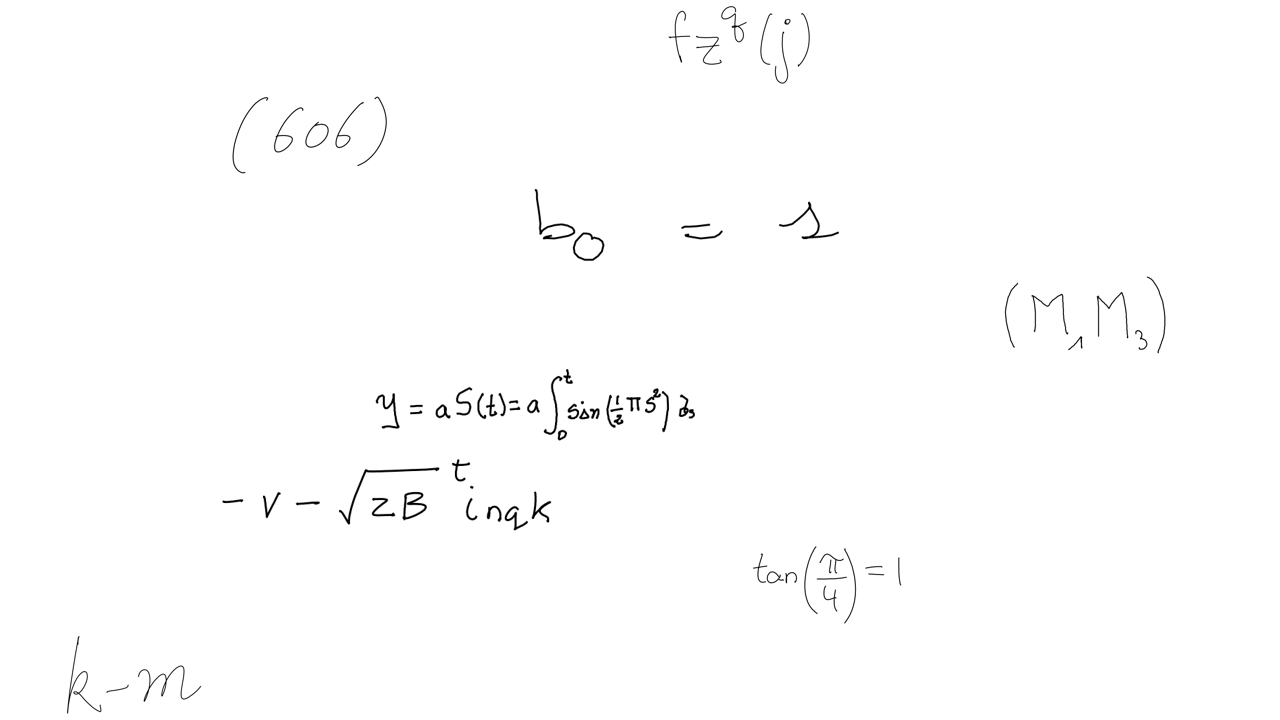 fz^q(j)
(606)
b_0 = s
(M_1 M_3)
y = aS(t) = a∫_0^t sin(½πs²)∂s
-v-√zB^t inqk
tan(π/4) = 1
k-m